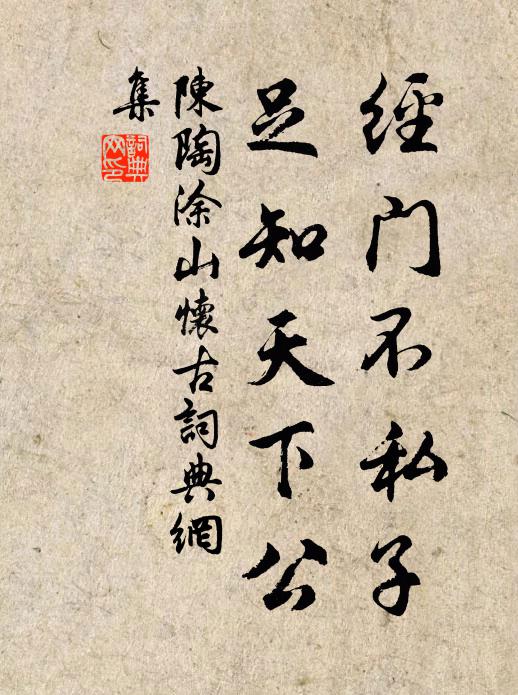 經門不私子
足知天下公
陳陶涂山懷古詞典網
集
詞典
网印